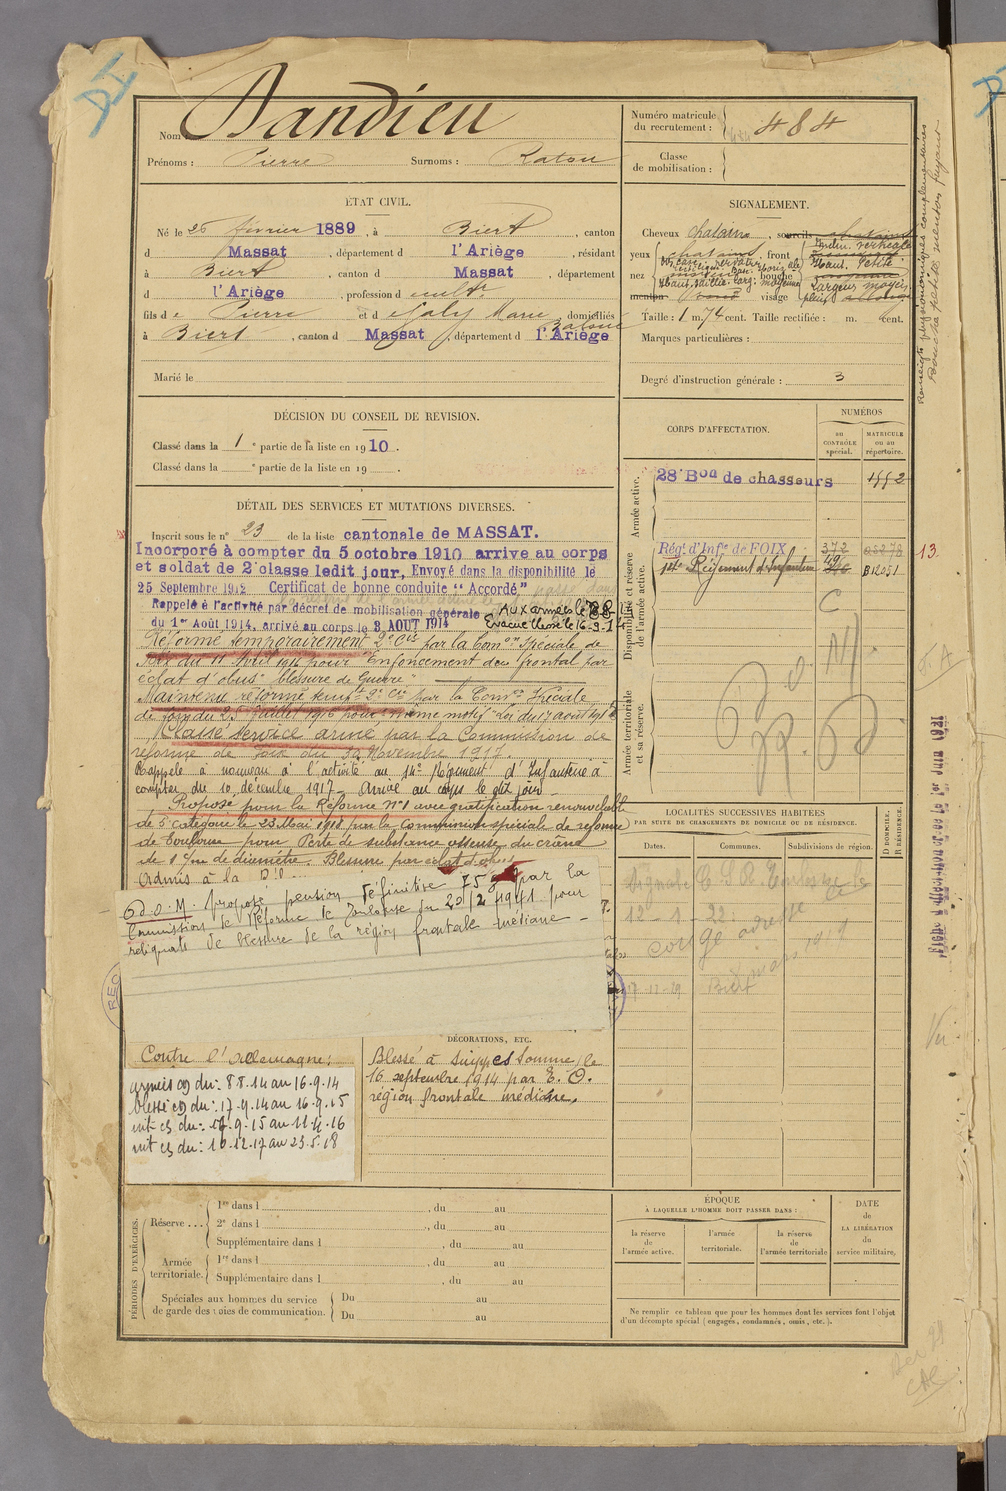 DI
Nom : Dandieu
Prénoms : Pierre Surnoms : Ratou
Numéro matricule du recrutement : 484
Classe de mobilisation :
ÉTAT CIVIL.
Né le 26 février 1889, à Biert, canton
d Massat, département d l'Ariège, résidant
à Biert, canton d Massat, département
d l'Ariège, profession d cultr
fils de Pierre et d Galy Marie, domiciliés
à Biert, canton d Massat, département d l'Ariège
Marié le
SIGNALEMENT.
Cheveux chatains, sourcils chatains
yeux chatains front
nez bouche
menton rond visage
Taille : 1 m. 74 cent. Taille rectifiée : m. cent.
Marques particulières :
Degré d'instruction générale : 3
Renseigts physionomiques complémentaires
Bouche petite menton fuyant
DÉCISION DU CONSEIL DE REVISION.
Classé dans la 1e partie de la liste en 1910.
Classé dans la e partie de la liste en 19 .
CORPS D'AFFECTATION.
NUMÉROS
au CONTRÔLE spécial.
MATRICULE ou au répertoire.
Armée active.
28e Bon de chasseurs 1552
Disponibilité et réserve de l'armée active.
Régt d'Infie de FOIX 372
13
Régiment d'Infanterie B12051
Armée territoriale et sa réserve.
DÉTAIL DES SERVICES ET MUTATIONS DIVERSES.
Inscrit sous le n° 23 de la liste cantonale de MASSAT.
Incorporé à compter du 5 octobre 1910 arrive au corps
et soldat de 2e classe ledit jour, Envoyé dans la disponibilité le
25 Septembre 1912 Certificat de bonne conduite "Accordé"
Rappelé à l'activité par décret de mobilisation générale Aux armées le 8-8-14
du 1er Août 1914, arrivé au corps le 3 AOUT 1914 Evacué blessé le 16-9-14
Réformé temporairement 2e Cie par la Comon Spéciale de
Foix du 11 Avril 1916 pour "Enfoncement du frontal par
éclat d'obus" blessure de Guerre"
Maintenu réformé tempre 2e Cie par la Comon Spéciale
de Foix du 25 Juillet 1916 pour même motif "Loi du 17 août 1915
Classé Service armé par la Commission de
réforme de Foix du 22 Novembre 1917.
Rappelé à nouveau à l'activité au 14e Régiment d'Infanterie à
compter du 10 décembre 1917 - Arrivé au corps le dit jour -
Proposé pour la Réforme N°1 avec gratification renouvelable
de 5e catégorie le 23 Mai 1918 par la Commission spéciale de réforme
de Toulouse pour Perte de substance osseuse du crâne
de 1 c/m de diamètre. Blessure par éclat d'obus
Admis à la
C.d.O.M. proposé pension définitive 75% par la
Commission de Réforme de Toulouse du 20/2 1941 pour
reliquats de blessure de la région frontale médiane -
LOCALITÉS SUCCESSIVES HABITÉES
PAR SUITE DE CHANGEMENTS DE DOMICILE OU DE RÉSIDENCE.
Dates. Communes. Subdivisions de région.
D DOMICILE. R RÉSIDENCE.
12-1-22
congé adresse
mars 1919
17-12-29 Biert
Contre l'Allemagne :
armées CD du : 8 8.14 au 16.9.14
blessé CD du : 17.9.14 au 16.9.15
int CS du : 17.9.15 au 11.4.16
int CS du : 10.12.17 au 23.5.18
DÉCORATIONS, ETC.
Blessé à Suippes Somme, le
16 septembre 1914 par E. O.
région frontale médiane.
PÉRIODES D'EXERCICES.
Réserve ...
1re dans l , du au
2e dans l , du au
Supplémentaire dans l , du au
Armée territoriale.
1re dans l , du au
Supplémentaire dans l , du au
Spéciales aux hommes du service de garde des voies de communication.
Du au
Du au
ÉPOQUE
À LAQUELLE L'HOMME DOIT PASSER DANS :
la réserve de l'armée active.
l'armée territoriale.
la réserve de l'armée territoriale
DATE de LA LIBÉRATION du service militaire.
Ne remplir ce tableau que pour les hommes dont les services font l'objet
d'un décompte spécial (engagés, condamnés, omis, etc.).